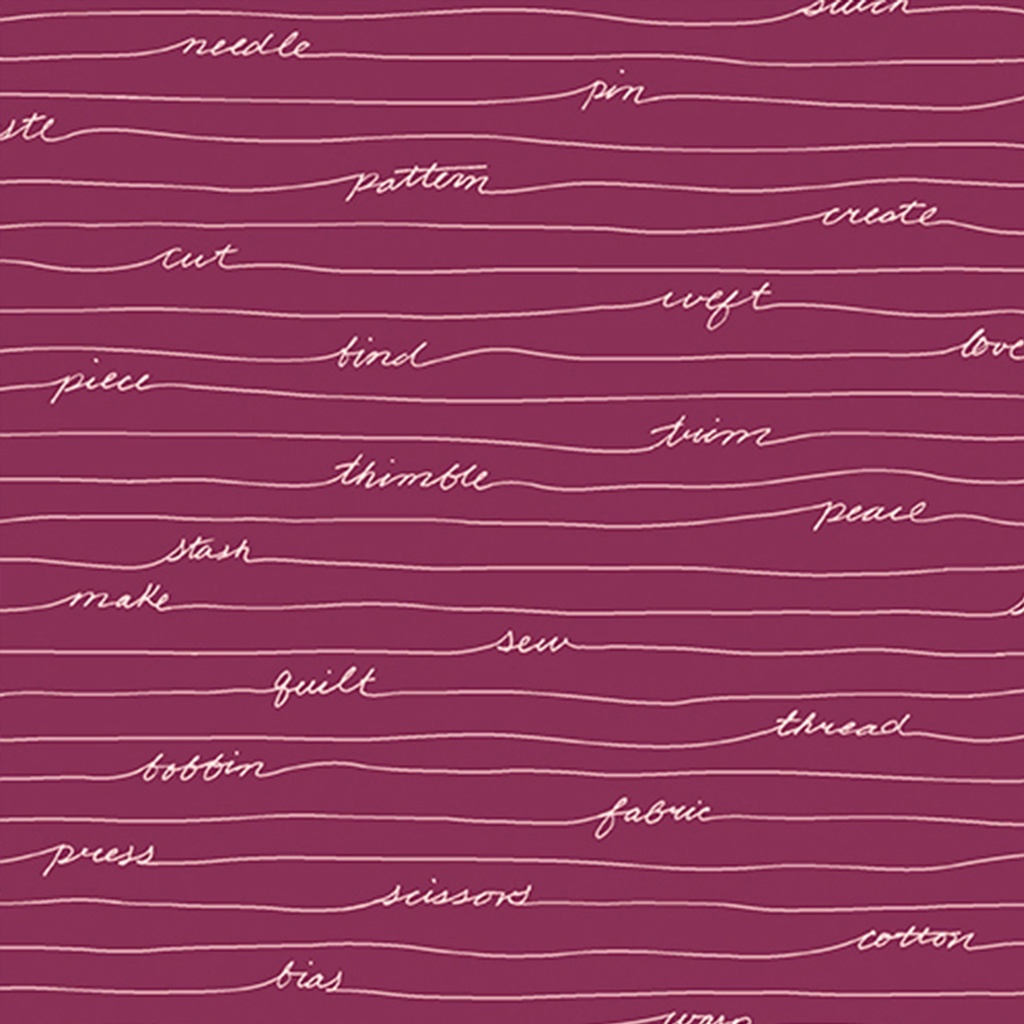 needle
pin
ste
pattern
create
cut
weft
love
bind
piece
trim
thimble
peace
stash
make
sew
quilt
thread
bobbin
fabric
press
scissors
cotton
bias
warp